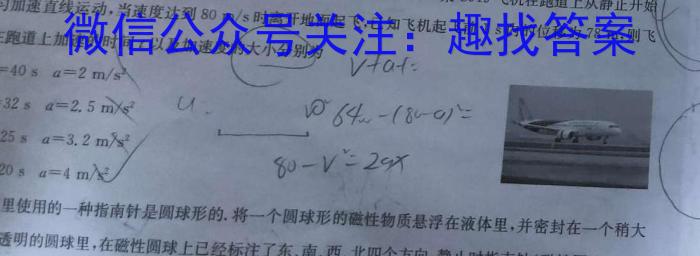 匀加速直线运动,当速度达到80 m/s时离开地面起飞,已知飞机起飞
飞机在跑道上从静止开始
位移为78 m,则飞
微信公众号关注：趣找答案
在跑道上加速的时间 以及加速度的大小分别为
=40 s a=2 m/s²
=32 s a=2.5 m/s²
25 s a=3.2 m/s²
20 s a=4 m/s²
V+at=
80-V²=2ax
里使用的一种指南针是圆球形的.将一个圆球形的磁性物质悬浮在液体里,并密封在一个稍大
透明的圆球里,在磁性圆球上已经标注了东、南、西、北四个方向